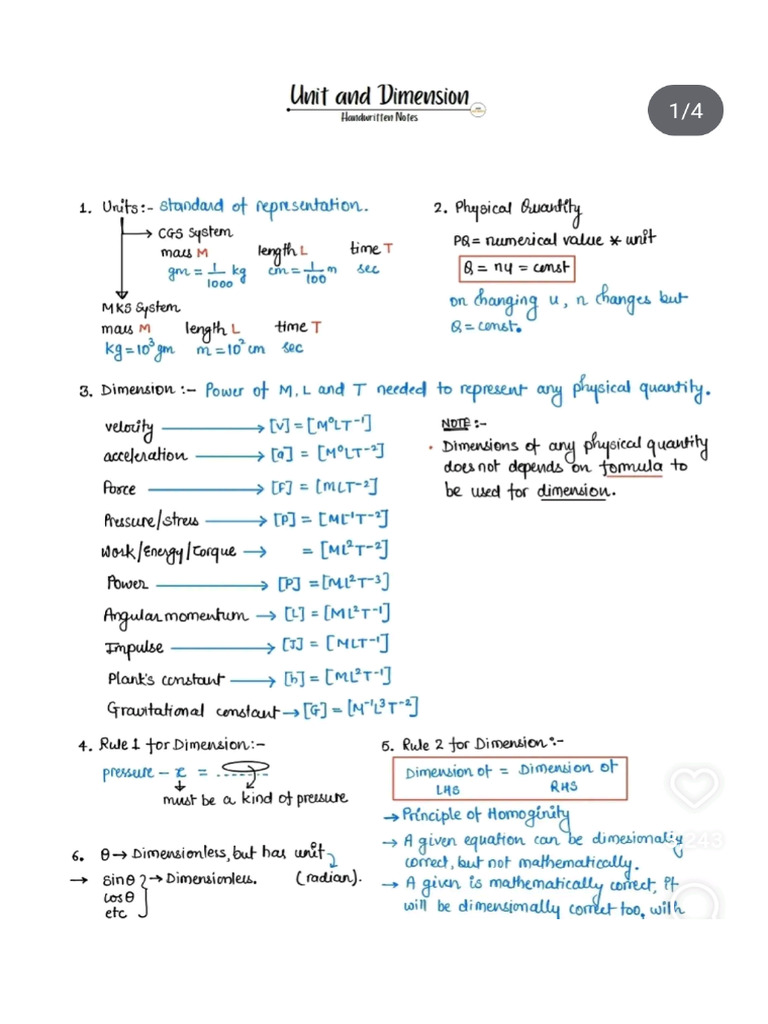 Unit and Dimension
Handwritten Notes
1/4
1. Units:- standard of representation.
CGS System
mass M length L time T
gm = 1/1000 kg cm = 1/100 m sec
MKS System
mass M length L time T
kg = 10³ gm m = 10² cm sec
2. Physical Quantity
PQ = numerical value * unit
Q = nu = const
on changing u, n changes but
Q = const.
3. Dimension :- Power of M, L and T needed to represent any physical quantity.
velocity → [V] = [M⁰LT⁻¹]
acceleration → [a] = [M⁰LT⁻²]
Force → [F] = [MLT⁻²]
Pressure/stress → [P] = [ML⁻¹T⁻²]
Work/Energy/Torque → = [ML²T⁻²]
Power → [P] = [ML²T⁻³]
Angular momentum → [L] = [ML²T⁻¹]
Impulse → [J] = [MLT⁻¹]
Plank's constant → [h] = [ML²T⁻¹]
Gravitational constant → [G] = [M⁻¹L³T⁻²]
NOTE :-
• Dimensions of any physical quantity
does not depends on formula to
be used for dimension.
4. Rule 1 for Dimension:-
pressure - x = ........
must be a kind of pressure
6. θ → Dimensionless, but has unit
(radian).
→ sinθ → Dimensionless.
cosθ
etc
5. Rule 2 for Dimension:-
Dimension of = Dimension of
LHS RHS
→ Principle of Homoginity
→ A given equation can be dimesionally
correct, but not mathematically.
→ A given is mathematically correct, it
will be dimensionally correct too, with